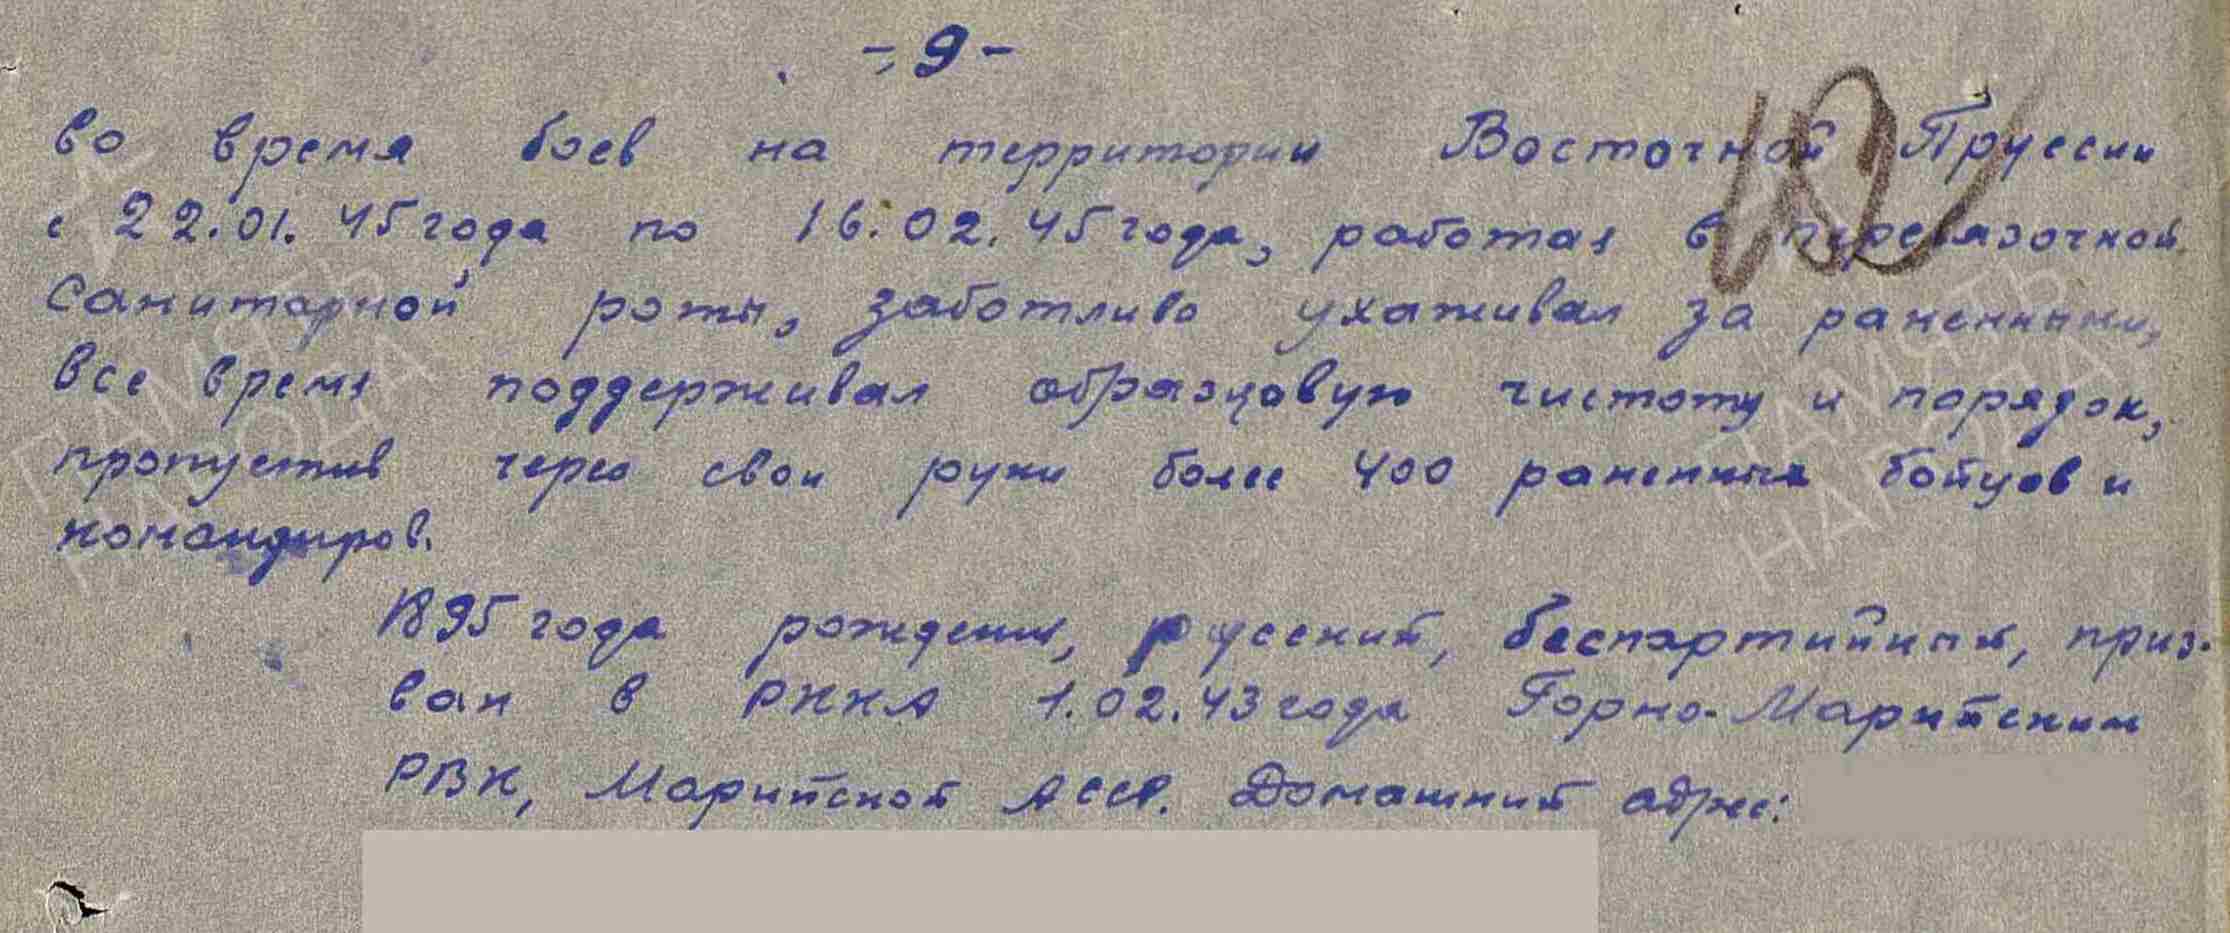 - 9 -
во время боев на территории Восточной Пруссии
с 22.01.45 года по 16.02.45 года, работая в перевязочной
санитарной роты, заботливо ухаживал за раненными,
все время поддерживал образцовую чистоту и порядок,
пропустив через свои руки более 400 раненных бойцов и
командиров.
1895 года рождения, русский, беспартийный, приз-
ван в РККА 1.02.43 года Горно-Марийским
РВК, Марийской АССР. Домашний адрес:
ПАМЯТЬ
НАРОДА
ПАМЯТЬ
НАРОДА